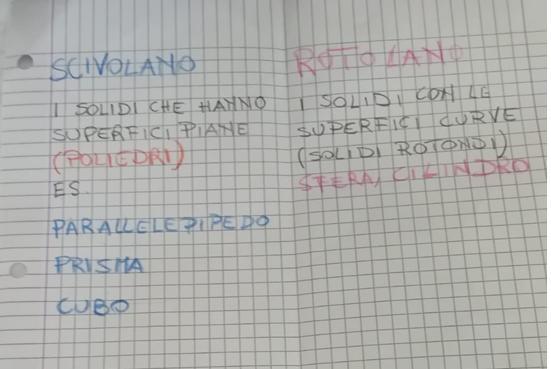 SCIVOLANO
I SOLIDI CHE HANNO
SUPERFICI PIANE
(POLIEDRI)
ES
PARALLELEPIPEDO
PRISMA
CUBO
ROTOLANO
I SOLIDI CON LE
SUPERFICI CURVE
(SOLIDI ROTONDI)
SFERA, CILINDRO